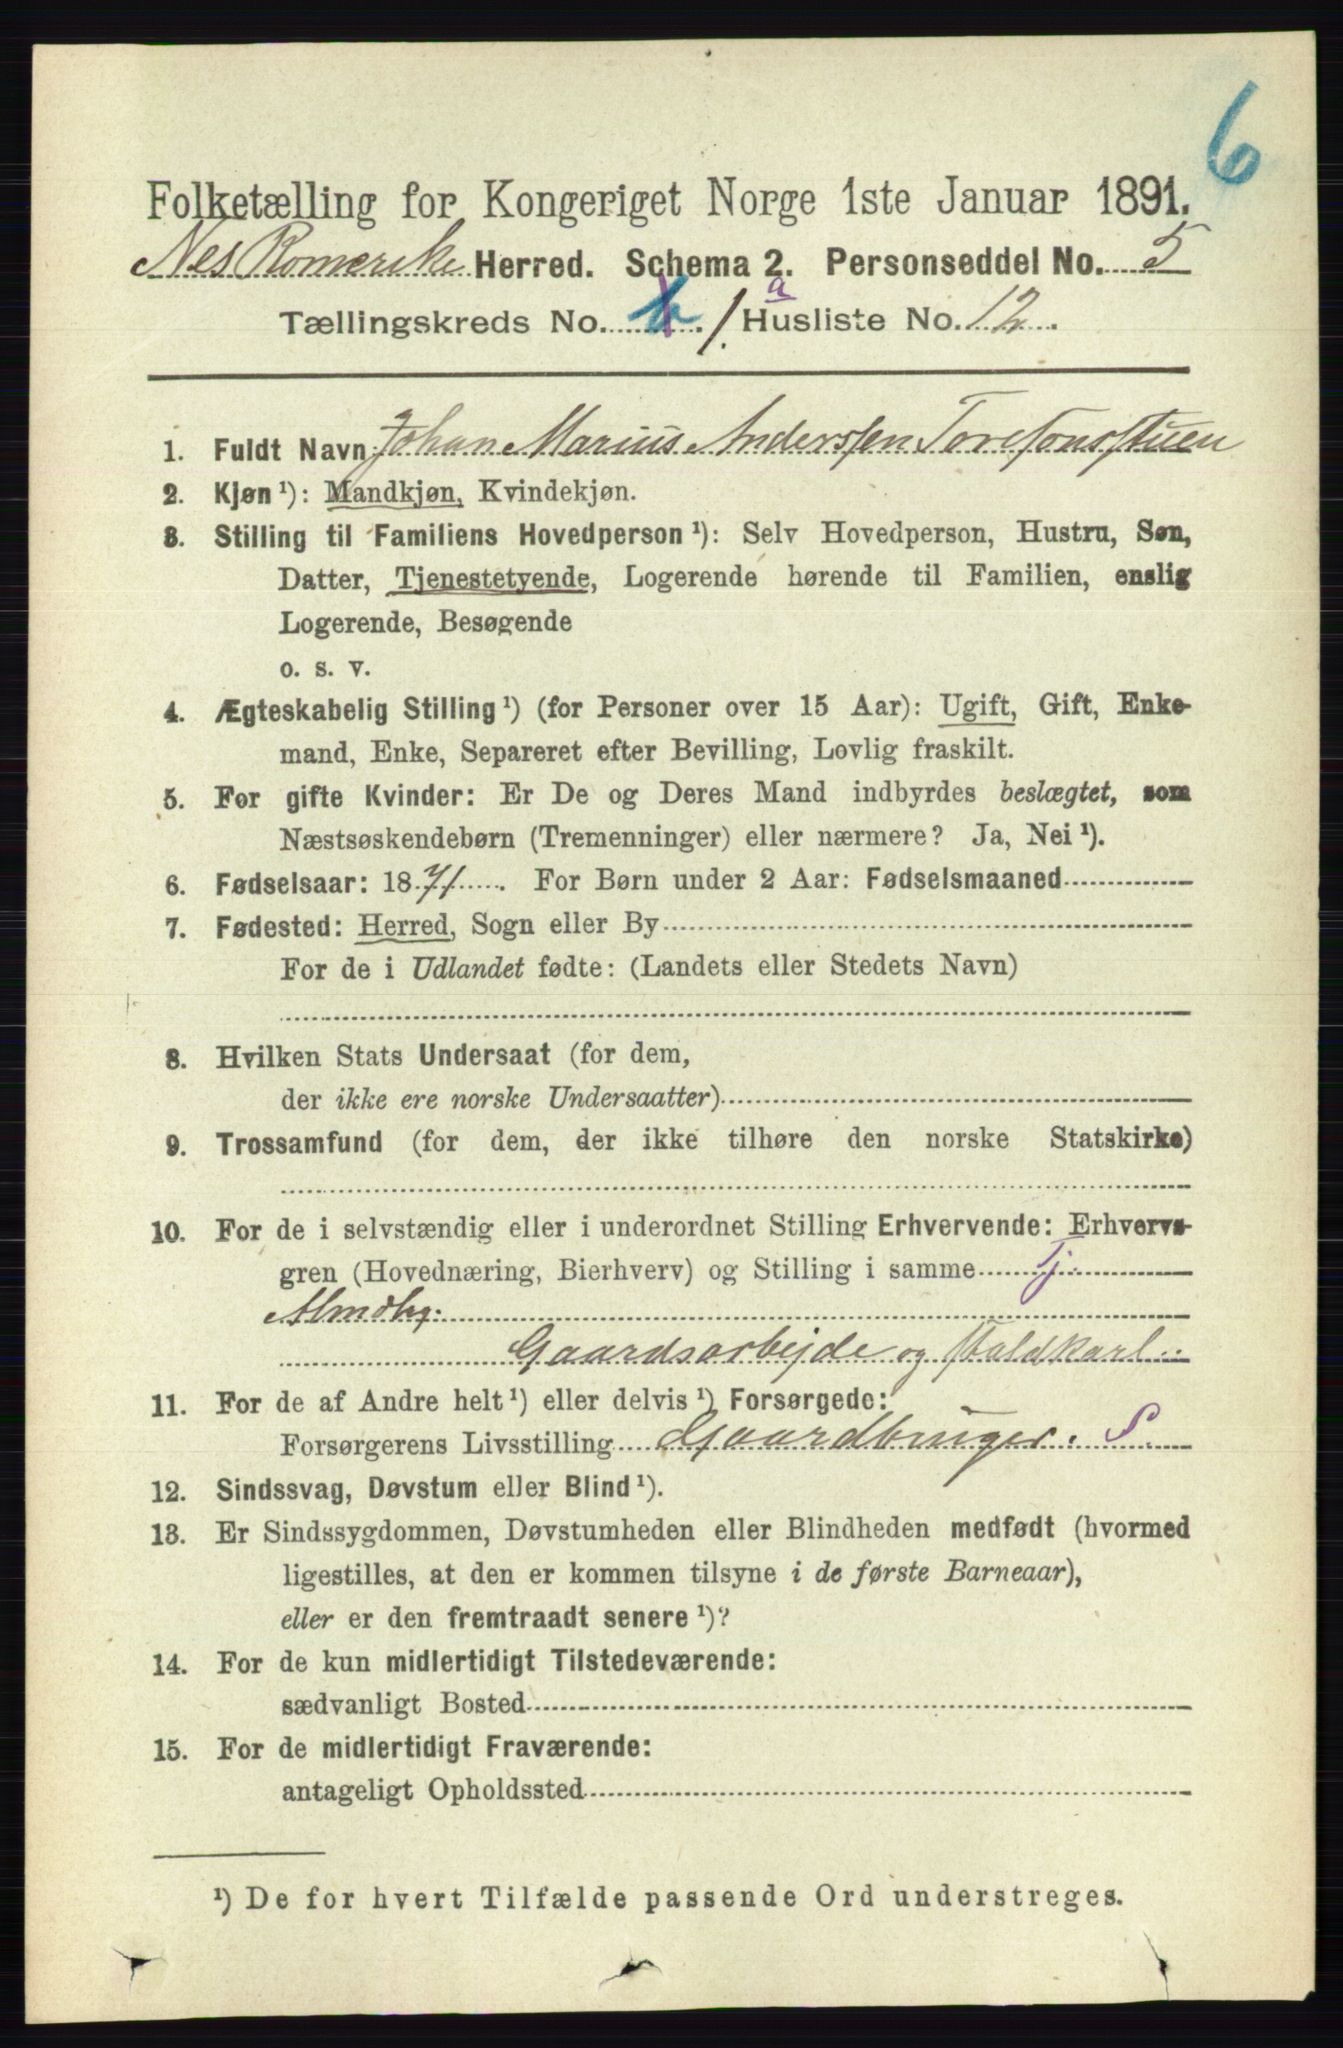 6
Folketælling for Kongeriget Norge 1ste Januar 1891.
Nes Romerike Herred. Schema 2. Personseddel No. 5
Tællingskreds No. 6 1. a Husliste No. 12.
1. Fuldt Navn Johan Marius Anderssen Toresonsstuen
2. Kjøn ¹): Mandkjøn, Kvindekjøn.
3. Stilling til Familiens Hovedperson ¹): Selv Hovedperson, Hustru, Søn,
Datter, Tjenestetyende, Logerende hørende til Familien, enslig
Logerende, Besøgende
o. s. v.
4. Ægteskabelig Stilling ¹) (for Personer over 15 Aar): Ugift, Gift, Enke-
mand, Enke, Separeret efter Bevilling, Lovlig fraskilt.
5. For gifte Kvinder: Er De og Deres Mand indbyrdes beslægtet, som
Næstsøskendebørn (Tremenninger) eller nærmere? Ja, Nei ¹).
6. Fødselsaar: 1871. For Børn under 2 Aar: Fødselsmaaned
7. Fødested: Herred, Sogn eller By
For de i Udlandet fødte: (Landets eller Stedets Navn)
8. Hvilken Stats Undersaat (for dem,
der ikke ere norske Undersaatter)
9. Trossamfund (for dem, der ikke tilhøre den norske Statskirke)
10. For de i selvstændig eller i underordnet Stilling Erhvervende: Erhvervs-
gren (Hovednæring, Bierhverv) og Stilling i samme Tj.
Gaardsarbejde og Staldkarl.
11. For de af Andre helt ¹) eller delvis ¹) Forsørgede:
Forsørgerens Livsstilling Gaardbruger. S.
12. Sindssvag, Døvstum eller Blind ¹).
13. Er Sindssygdommen, Døvstumheden eller Blindheden medfødt (hvormed
ligestilles, at den er kommen tilsyne i de første Barneaar),
eller er den fremtraadt senere ¹)?
14. For de kun midlertidigt Tilstedeværende:
sædvanligt Bosted
15. For de midlertidigt Fraværende:
antageligt Opholdssted
¹) De for hvert Tilfælde passende Ord understreges.